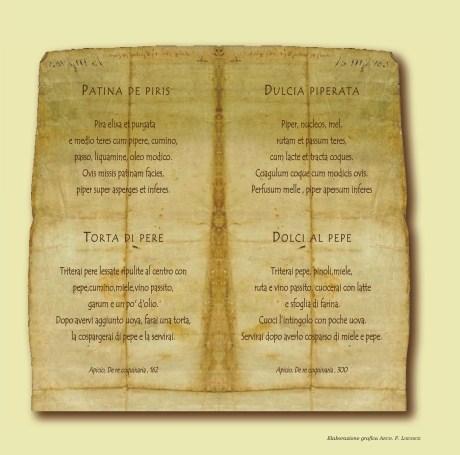 PATINA DE PIRIS
Pira elisa et purgata
e medio teres cum pipere, cumino,
passo, liquamine, oleo modico.
Ovis missis patinam facies,
piper super asperges et inferes.
TORTA DI PERE
Triterai pere lessate ripulite al centro con
pepe,cumino,miele,vino passito,
garum e un po' d'olio.
Dopo avervi aggiunto uova, farai una torta,
la cospargerai di pepe e la servirai.
Apicio, De re coquinaria, 162
DULCIA PIPERATA
Piper, nucleos, mel,
rutam et passum teres,
cum lacte et tracta coques.
Coagulum coque cum modicis ovis.
Perfusum melle , piper apersum inferes
DOLCI AL PEPE
Triterai pepe, pinoli,miele,
ruta e vino passito, cuocerai con latte
e sfoglia di farina.
Cuoci l'intingolo con poche uova.
Servirai dopo averlo cosparso di miele e pepe.
Apicio, De re coquinaria , 300
Elaborazione grafica Arch. F.